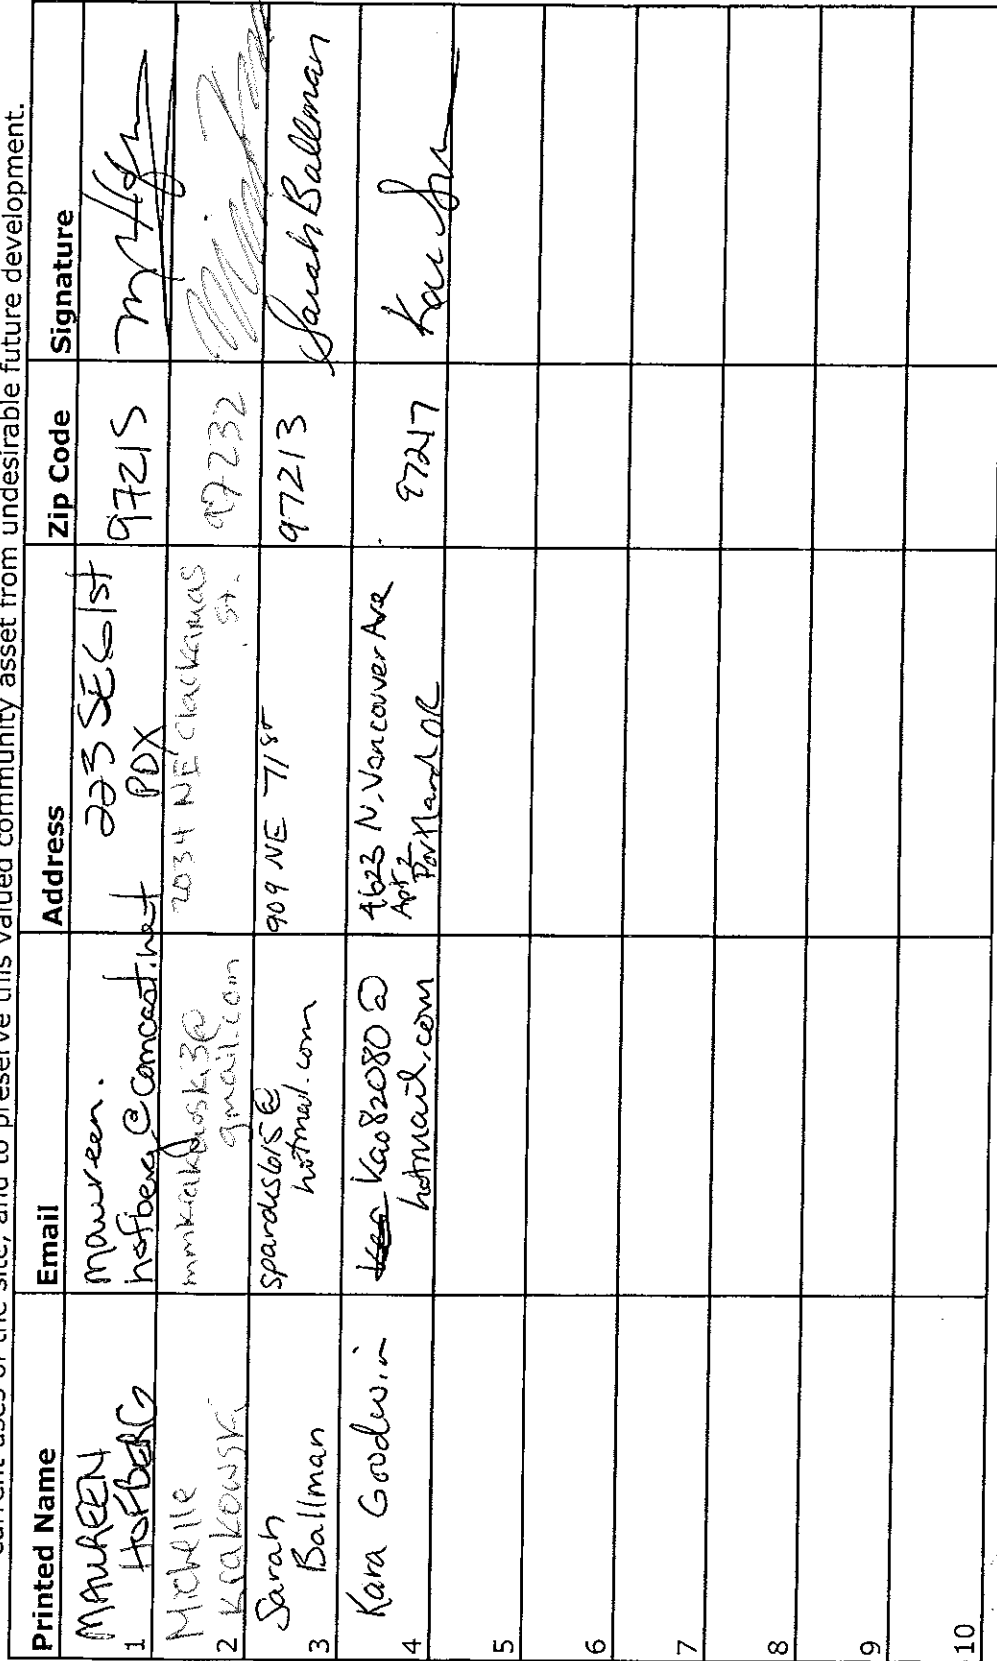 current uses of the site, and to preserve this valued community asset from undesirable future development.
Printed Name Email Address Zip Code Signature
1 MAUREEN HOFBERG
maureen.
hofberg@comcast.net
223 SE 61st
PDX
97215
2 Michelle
Krakowski
mmkrakowski3@
gmail.com
2034 NE Clackamas
St.
97232
3 Sarah
Ballman
spardis615@
hotmail.com
909 NE 71st
97213
Sarah Ballman
4 Kara Goodwin
Kao82080@
hotmail.com
4623 N. Vancouver Ave
Apt 2
Portland OR
97217
5
6
7
8
9
10